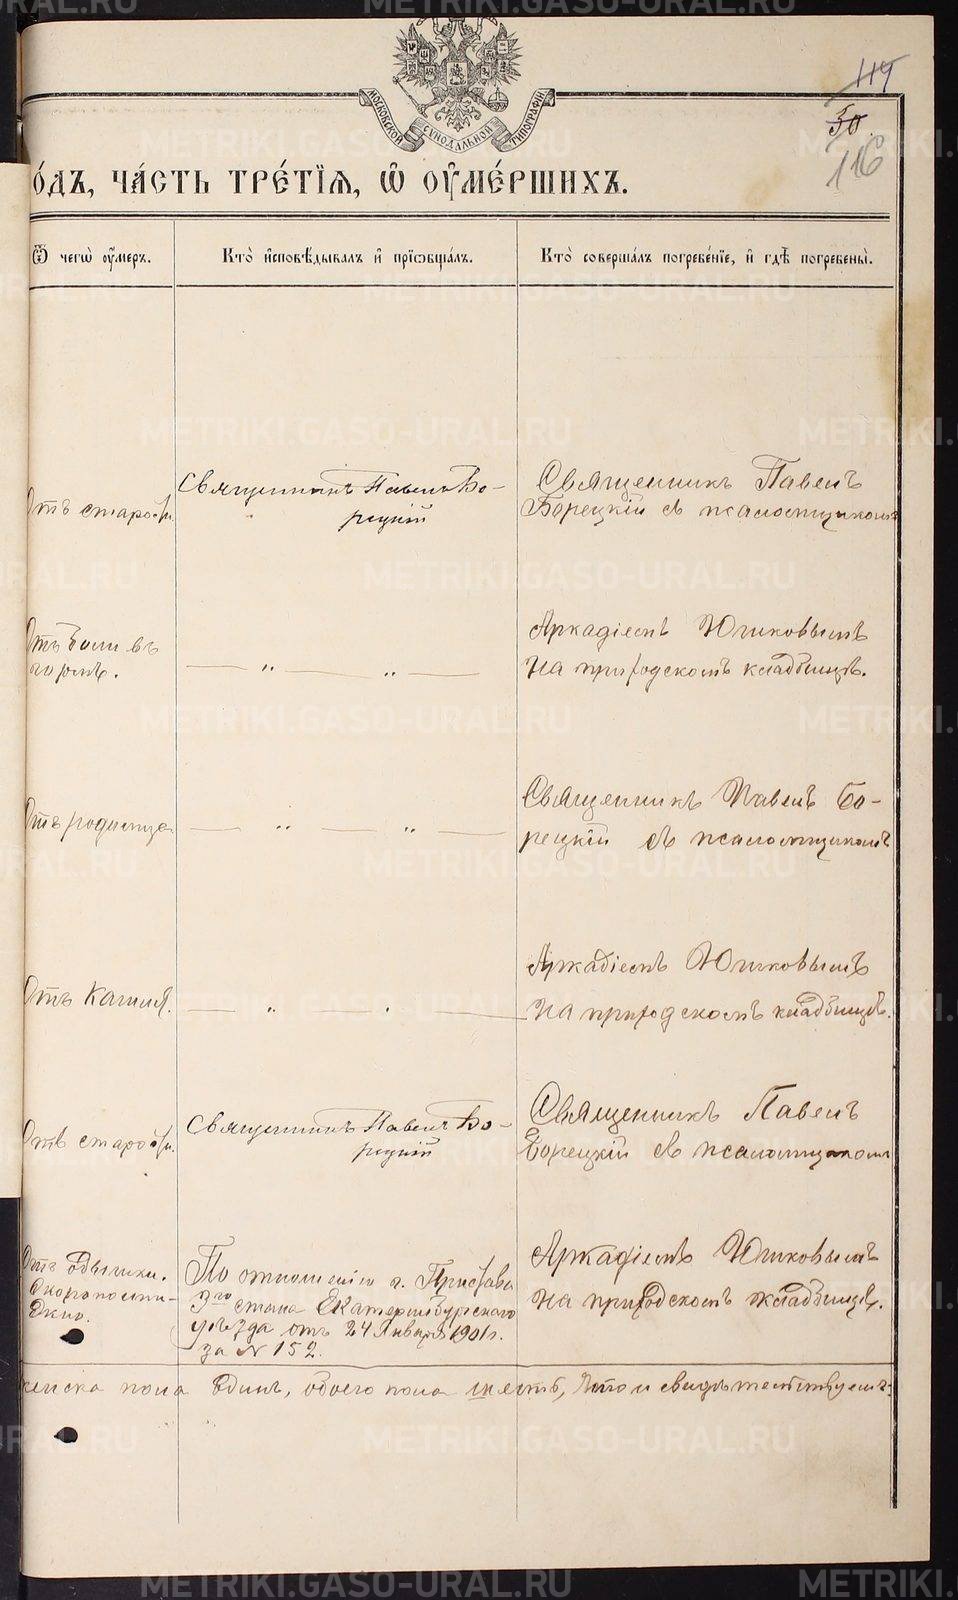 МОСКОВСКОЙ СѴНОДАЛЬНОЙ ТИПОГРАФІИ
117
30.
116
О́ДЪ, ЧА́СТЬ ТРЕ́ТІЯ, Ѽ ОУ҆МЕ́РШИХЪ.
Ѿ чегѡ̀ оу҆́меръ.
Кто̀ и҆сповѣ́дывалъ и҆ прїѡбща́лъ.
Кто̀ соверша́лъ погребе́нїе, и҆ гдѣ̀ погребены̀.
Отъ старости.
Священникъ Павелъ Бо-
рецкій
Священникъ Павелъ
Борецкій съ псаломщикомъ
Отъ боли въ
горлѣ.
— „ — „ —
Аркадіемъ Юшковымъ
на приходскомъ кладбищѣ.
Отъ родимца
— „ — „ —
Священникъ Павелъ Бо-
рецкій съ псаломщикомъ
Отъ кашля.
— „ — „ —
Аркадіемъ Юшковымъ
на приходскомъ кладбищѣ.
Отъ старости.
Священникъ Павелъ Бо-
рецкій
Священникъ Павелъ
Борецкій съ псаломщикомъ
Отъ одышки.
Скоропости-
жно.
По отношенію г. Пристава
3го стана Екатеринбургскаго
уѣзда отъ 24 Января 1901 г.
за № 152.
Аркадіемъ Юшковымъ
на приходскомъ кладбищѣ.
женска пола одинъ, обоего пола шесть, что и свидѣтельствуемъ:
METRIKI.GASO-URAL.RU